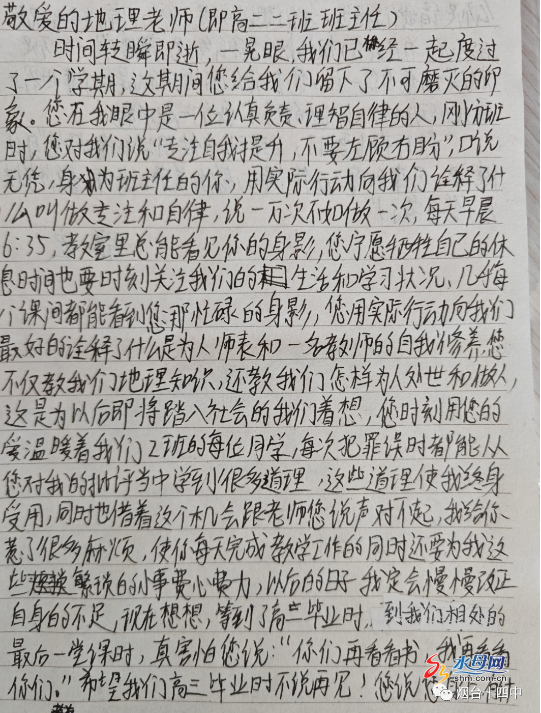 敬爱的地理老师(即高二二班班主任)
时间转瞬即逝,一晃眼,我们已经一起度过
了一个学期,这期间您给我们留下了不可磨灭的印
象。您在我眼中是一位认真负责、理智自律的人,刚分班
时,您对我们说“专注自我提升,不要左顾右盼”口说
无凭,身为班主任的你,用实际行动向我们诠释了什
么叫做专注和自律,说一万次不如做一次,每天早晨
6:35,教室里总能看见你的身影,您宁愿牺牲自己的休
息时间也要时刻关注我们的生活和学习状况,几乎每
个课间都能看到您那忙碌的身影,您用实际行动向我们
最好的诠释了什么是为人师表和一名教师的自我修养,您
不仅教我们地理知识,还教我们怎样为人处世和做人,
这是为以后即将踏入社会的我们着想,您时刻用您的
爱温暖着我们2班的每位同学,每次犯错误时都能从
您对我的批评当中学到很多道理,这些道理使我终身
受用,同时也借着这个机会跟老师您说声对不起,我给你
惹了很多麻烦,使你每天完成教学工作的同时还要为我这
些繁琐的小事费心费力,以后的日子我定会慢慢改正
自身的不足,现在想想,等到了高三毕业时,到我们相处的
最后一堂课时,真害怕您说:“你们再看看书,我再看看
你们。”希望我们高三毕业时不说再见!您说
水母网
shm.com.cn
烟台十四中